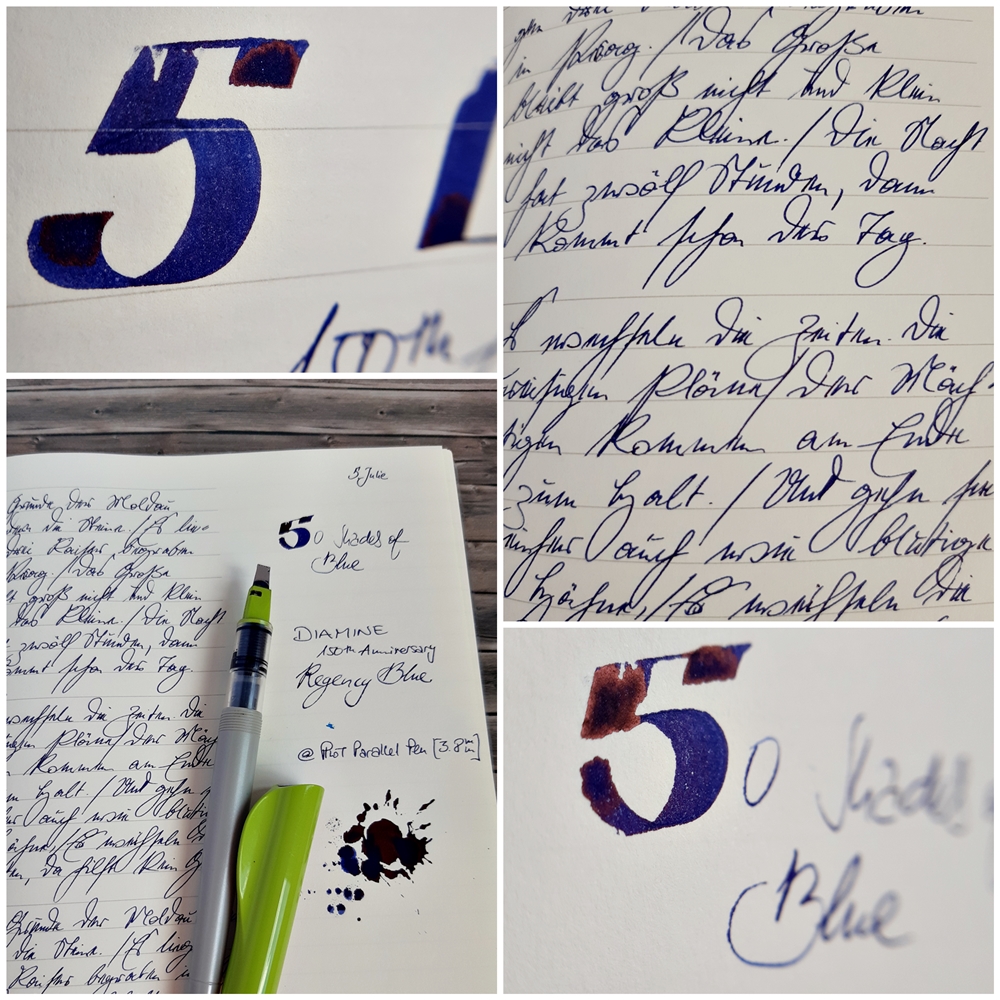 5
150th
in Prag. / Das Große
bleibt groß nicht und klein
nicht das Kleine. / Die Nacht
hat zwölf Stunden, dann
kommt schon der Tag.
wechseln die Zeiten. Die
riesigen Pläne / der Mäch-
tigen kommen am Ende
zum Halt. / Und gehn sie
einher auch wie blutige
Hähne, / Es wechseln die
5 Julie
50 Shades of
Blue
DIAMINE
150th Anniversary
Regency Blue
@ Pilot Parallel Pen [3.8mm]
Grunde der Moldau
die Steine. / Es lie
drei Kaiser begraben
Prag. / Das Große
groß nicht und klein
das Kleine. / Die Nacht
zwölf Stunden, dann
kommt schon der Tag.
wechseln die Zeiten. Die
Pläne / der Mäch
kommen am Ende
zum Halt. / Und gehn s
auch wie blutig
Hähne, / Es wechseln di
da hilft kein G
Grunde der Moldau
die Steine. / Es lieg
Kaiser begraben
50 Shades
Blue